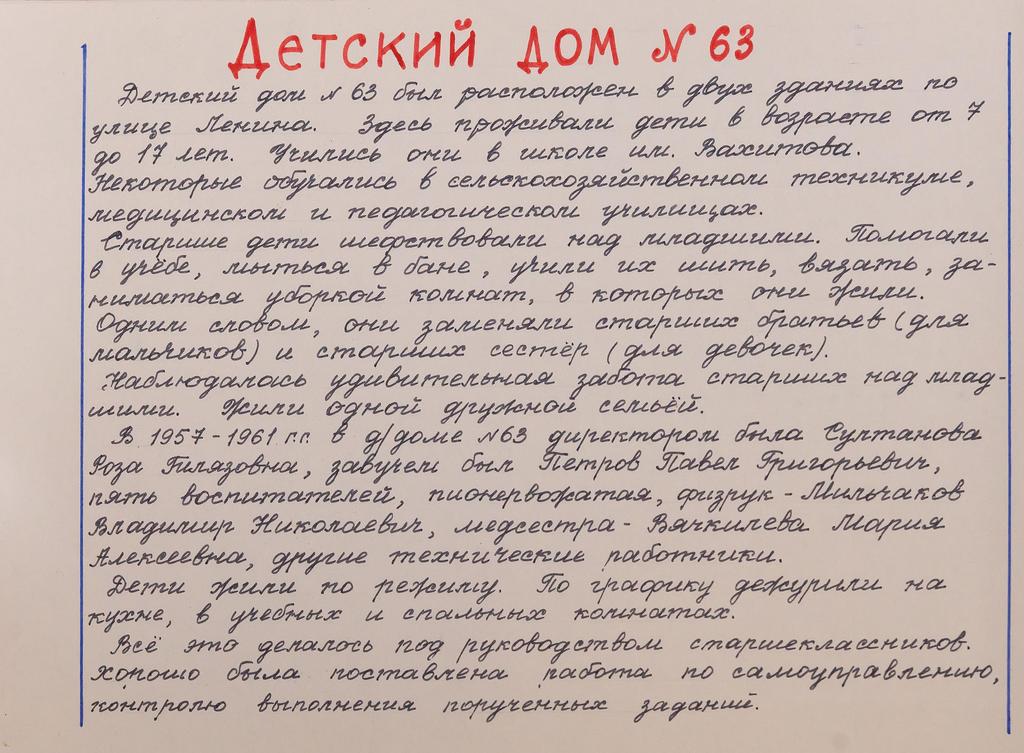 Детский дом № 63
Детский дом № 63 был расположен в двух зданиях по
улице Ленина. Здесь проживали дети в возрасте от 7
до 17 лет. Учились они в школе им. Вахитова.
Некоторые обучались в сельскохозяйственном техникуме,
медицинском и педагогическом училищах.
Старшие дети шефствовали над младшими. Помогали
в учёбе, мыться в бане, учили их шить, вязать, за-
ниматься уборкой комнат, в которых они жили.
Одним словом, они заменяли старших братьев (для
мальчиков) и старших сестёр (для девочек).
Наблюдалась удивительная забота старших над млад-
шими. Жили одной дружной семьёй.
В 1957-1961 г.г. в д/доме №63 директором была Султанова
Роза Гилязовна, завучем был Петров Павел Григорьевич,
пять воспитателей, пионервожатая, физрук - Мильчаков
Владимир Николаевич, медсестра - Вячкилева Мария
Алексеевна, другие технические работники.
Дети жили по режиму. По графику дежурили на
кухне, в учебных и спальных комнатах.
Всё это делалось под руководством старшеклассников.
Хорошо была поставлена работа по самоуправлению,
контролю выполнения порученных заданий.